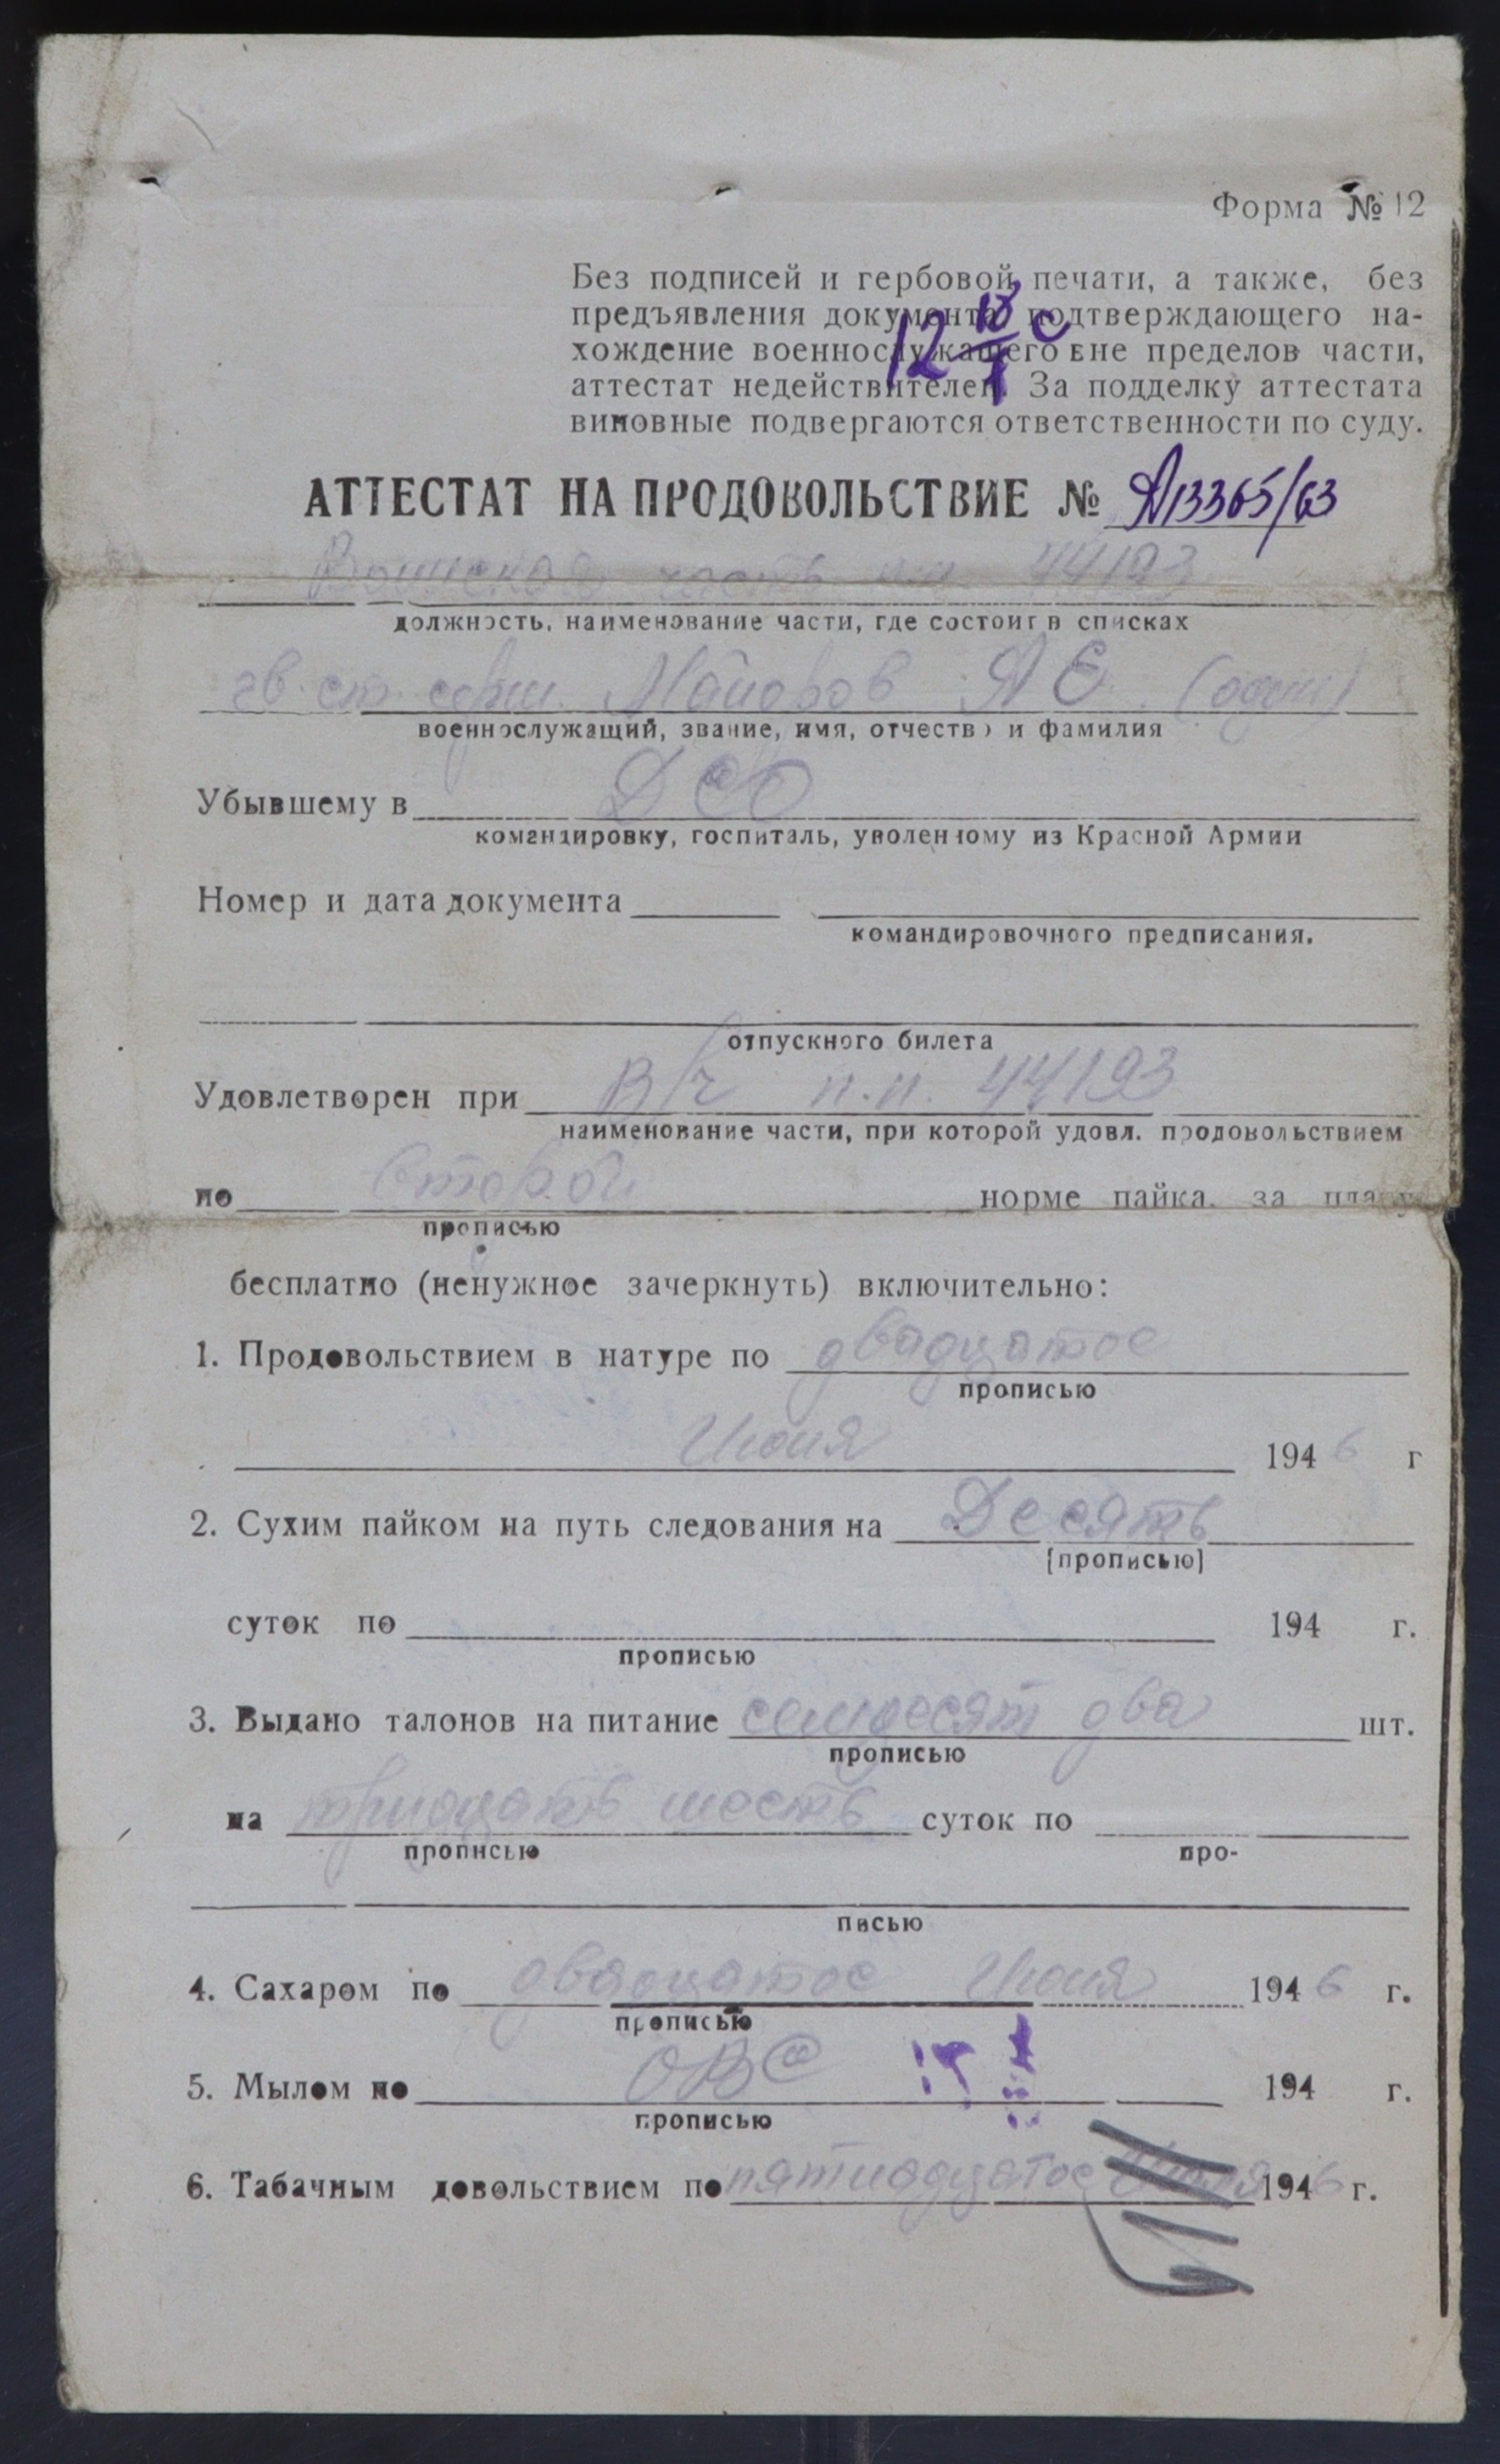 Форма № 12
Без подписей и гербовой печати, а также, без
предъявления документа, подтверждающего на-
хождение военнослужащего вне пределов части,
аттестат недействителен. За подделку аттестата
виновные подвергаются ответственности по суду.
АТТЕСТАТ НА ПРОДОВОЛЬСТВИЕ № А13365/63
Воинская часть п.п. 44193
должность, наименование части, где состоит в списках
гв. ст. серж. Майоров А Е (один)
военнослужащий, звание, имя, отчество и фамилия
Убывшему в
командировку, госпиталь, уволенному из Красной Армии
Номер и дата документа
командировочного предписания.
отпускного билета
Удовлетворен при В/ч п.п. 44193
наименование части, при которой удовл. продовольствием
по второй норме пайка, за плату
прописью
бесплатно (ненужное зачеркнуть) включительно:
1. Продовольствием в натуре по двадцатое
прописью
Июня 1946 г
2. Сухим пайком на путь следования на Десять
(прописью)
суток по 194 г.
прописью
3. Выдано талонов на питание семдесят два шт.
прописью
на тридцать шесть суток по
прописью про-
писью
4. Сахаром по двадцатое Июня 1946 г.
прописью
5. Мылом по ОВС 194 г.
прописью
6. Табачным довольствием по пятнадцатое 1946 г.